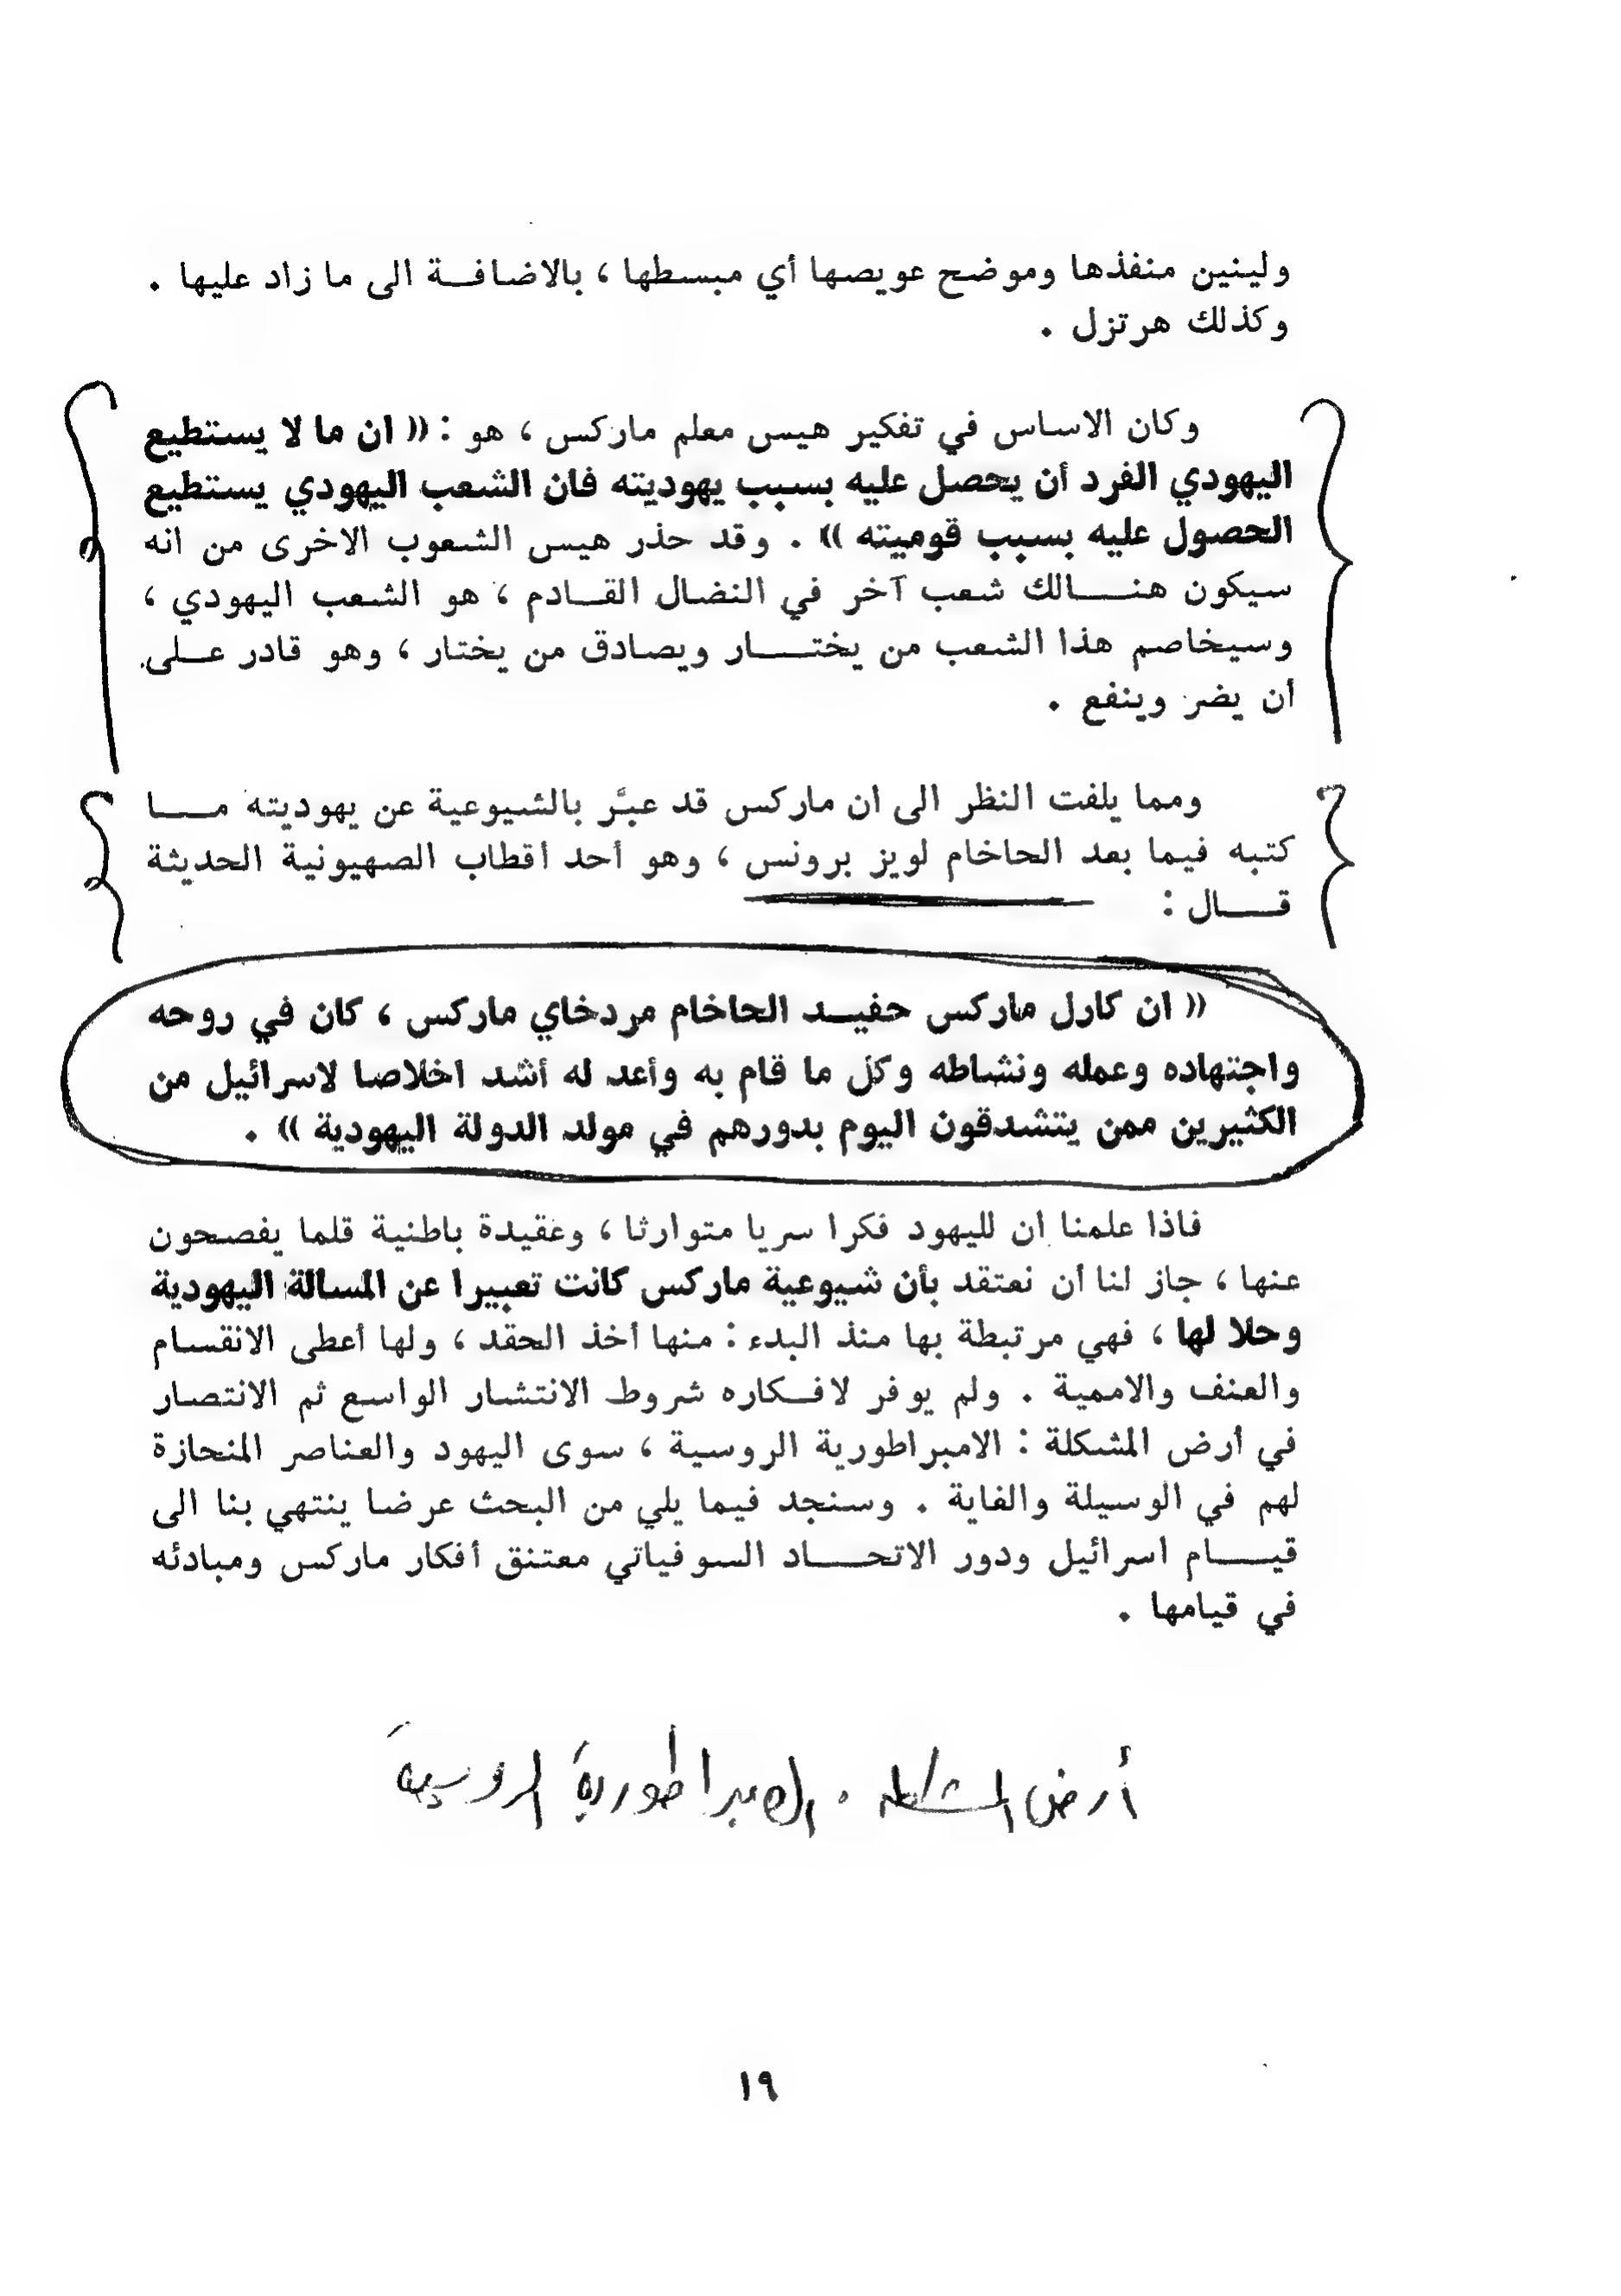 ولينين منفذها وموضح عويصها أي مبسطها ، بالاضافة الى ما زاد عليها .
وكذلك هرتزل .
وكان الاساس في تفكير هيس معلم ماركس ، هو : « ان ما لا يستطيع
اليهودي الفرد أن يحصل عليه بسبب يهوديته فان الشعب اليهودي يستطيع
الحصول عليه بسبب قوميته » . وقد حذر هيس الشعوب الاخرى من انه
سيكون هنالك شعب آخر في النضال القادم ، هو الشعب اليهودي ،
وسيخاصم هذا الشعب من يختار ويصادق من يختار ، وهو قادر على
أن يضر وينفع .
ومما يلفت النظر الى ان ماركس قد عبَّر بالشيوعية عن يهوديته ما
كتبه فيما بعد الحاخام لويز برونس ، وهو أحد أقطاب الصهيونية الحديثة
قال :
« ان كارل ماركس حفيد الحاخام مردخاي ماركس ، كان في روحه
واجتهاده وعمله ونشاطه وكل ما قام به وأعد له أشد اخلاصا لاسرائيل من
الكثيرين ممن يتشدقون اليوم بدورهم في مولد الدولة اليهودية » .
فاذا علمنا ان لليهود فكرا سريا متوارثا ، وعقيدة باطنية قلما يفصحون
عنها ، جاز لنا أن نعتقد بأن شيوعية ماركس كانت تعبيرا عن المسالة اليهودية
وحلا لها ، فهي مرتبطة بها منذ البدء : منها أخذ الحقد ، ولها أعطى الانقسام
والعنف والاممية . ولم يوفر لافكاره شروط الانتشار الواسع ثم الانتصار
في أرض المشكلة : الامبراطورية الروسية ، سوى اليهود والعناصر المنحازة
لهم في الوسيلة والغاية . وسنجد فيما يلي من البحث عرضا ينتهي بنا الى
قيام اسرائيل ودور الاتحاد السوفياتي معتنق أفكار ماركس ومبادئه
في قيامها .
أرض المشكلة . الامبراطورية الروسية
١٩